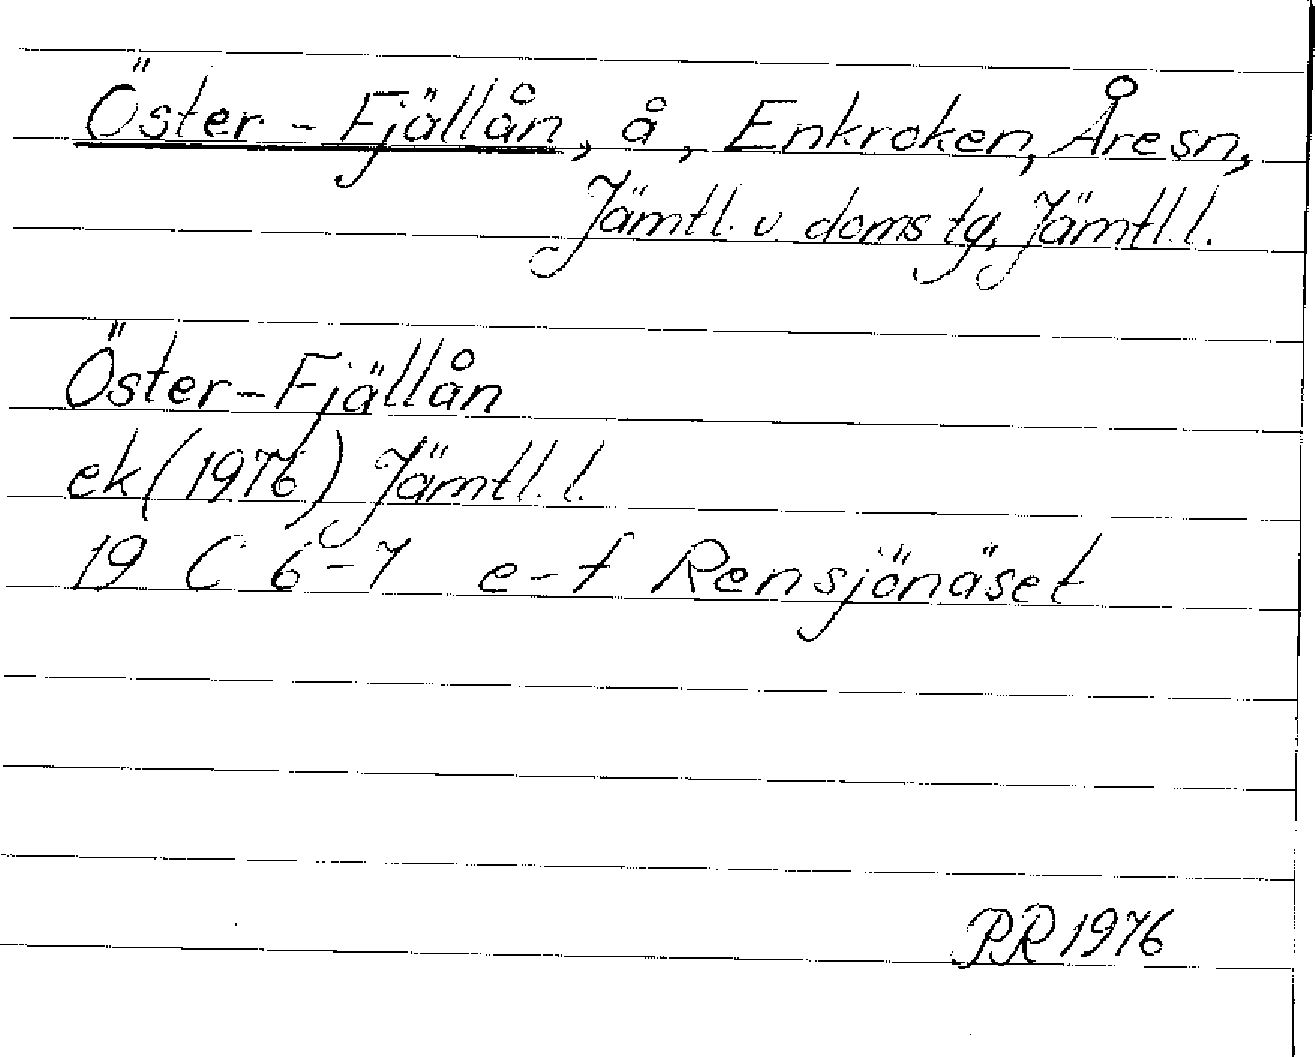 Öster-Fjällån, å, Enkroken, Åre sn,
Jämtl. v. doms tg, Jämtl. l.
Öster-Fjällån
ek (1976) Jämtl. l.
19 C 6-7 e-f Rensjönäset
PR 1976